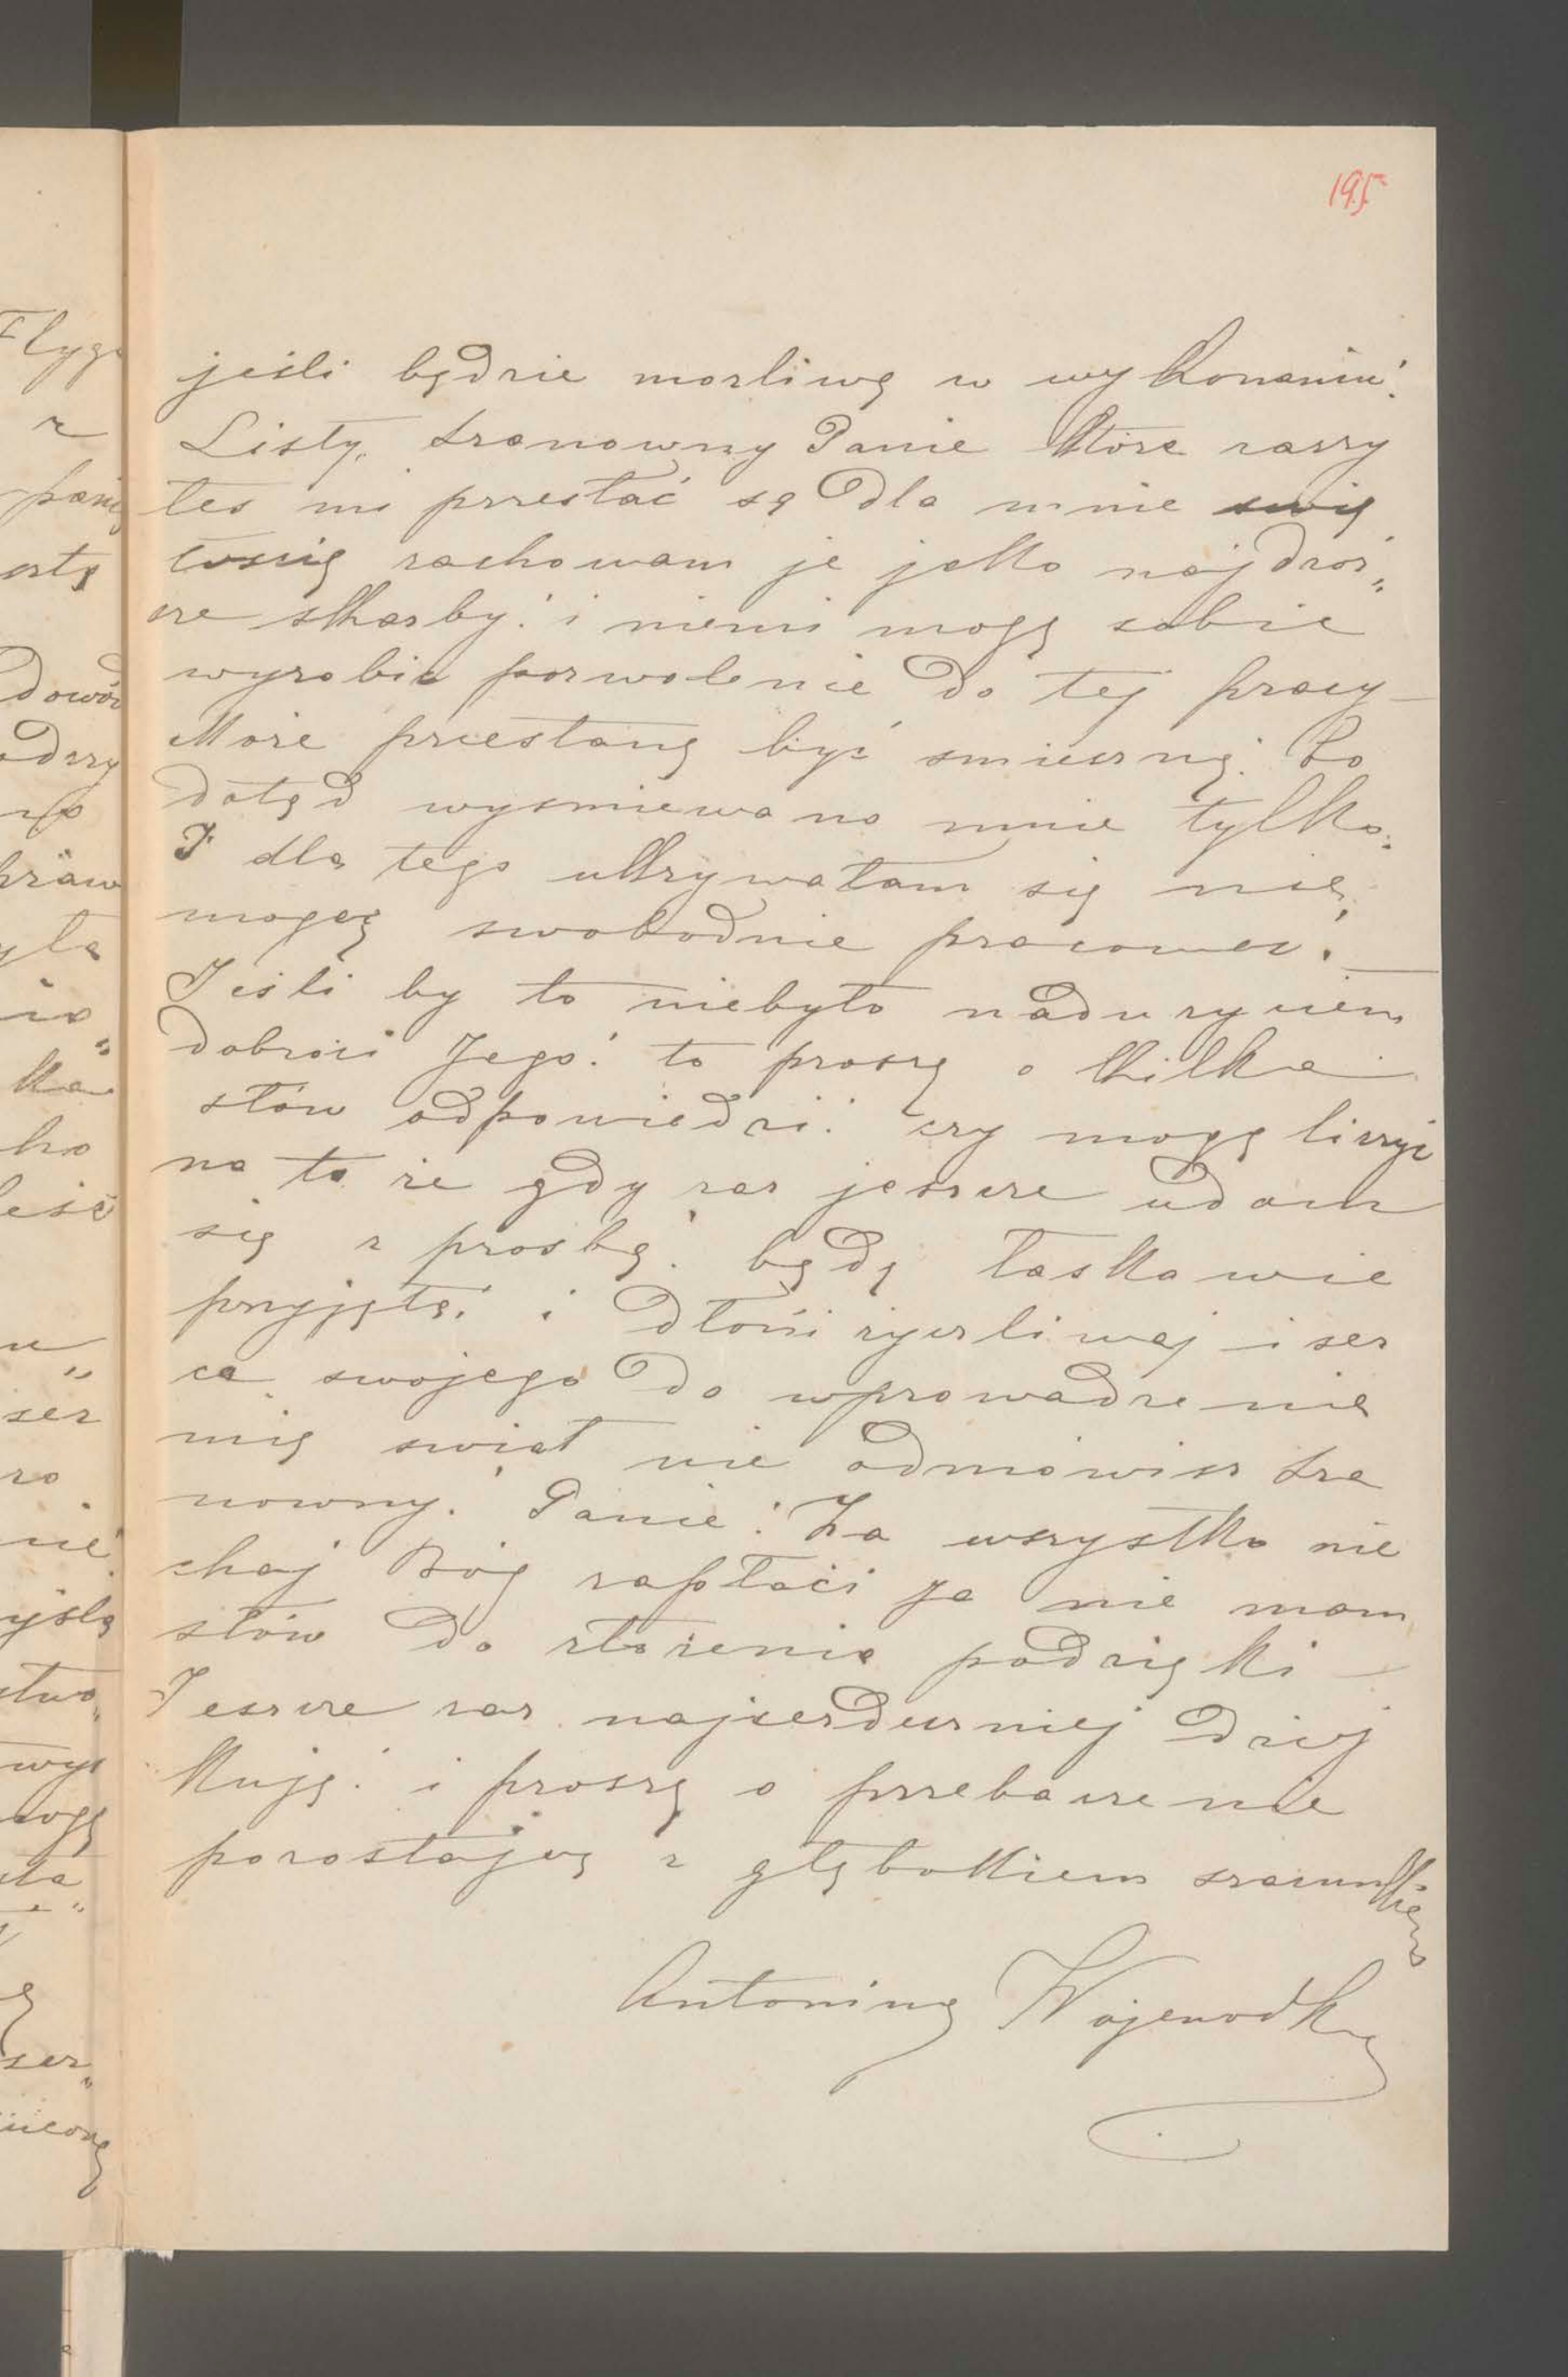 195
jeśli będzie możliwą w wykonaniu!
Listy, Szanowny Panie które raczy
łeś mi przesłać są dla mnie świę
tością zachowam je jako najdroż„
sze skarby! i niemi mogę sobie
wyrobić pozwolenie do tej pracy –
Może przestanę być śmieszną. Bo
dotąd wyśmiewano mnie tylko.
I dla tego ukrywałam się nie,
mogąc swobodnie pracować. –
Jeśli by to niebyło nadużyciem
dobroci Jego! to proszę o kilka
słów odpowiedzi! czy mogę liczyć
na to że gdy raz jeszcze udam
się z prośbą! będę łaskawie
przyjętą! i dłoni życzliwej i ser
ca swojego do wprowadzenia
mię świat nie odmówisz Sza
nowny. Panie! Za wszystko nie
chaj Bóg zapłaci ja nie mam
słów do złożenia podzięki –
Jeszcze raz najserdeczniej dzię
kuję! i proszę o przebaczenie
pozostając z głębokiem szacunkiem
Antonina